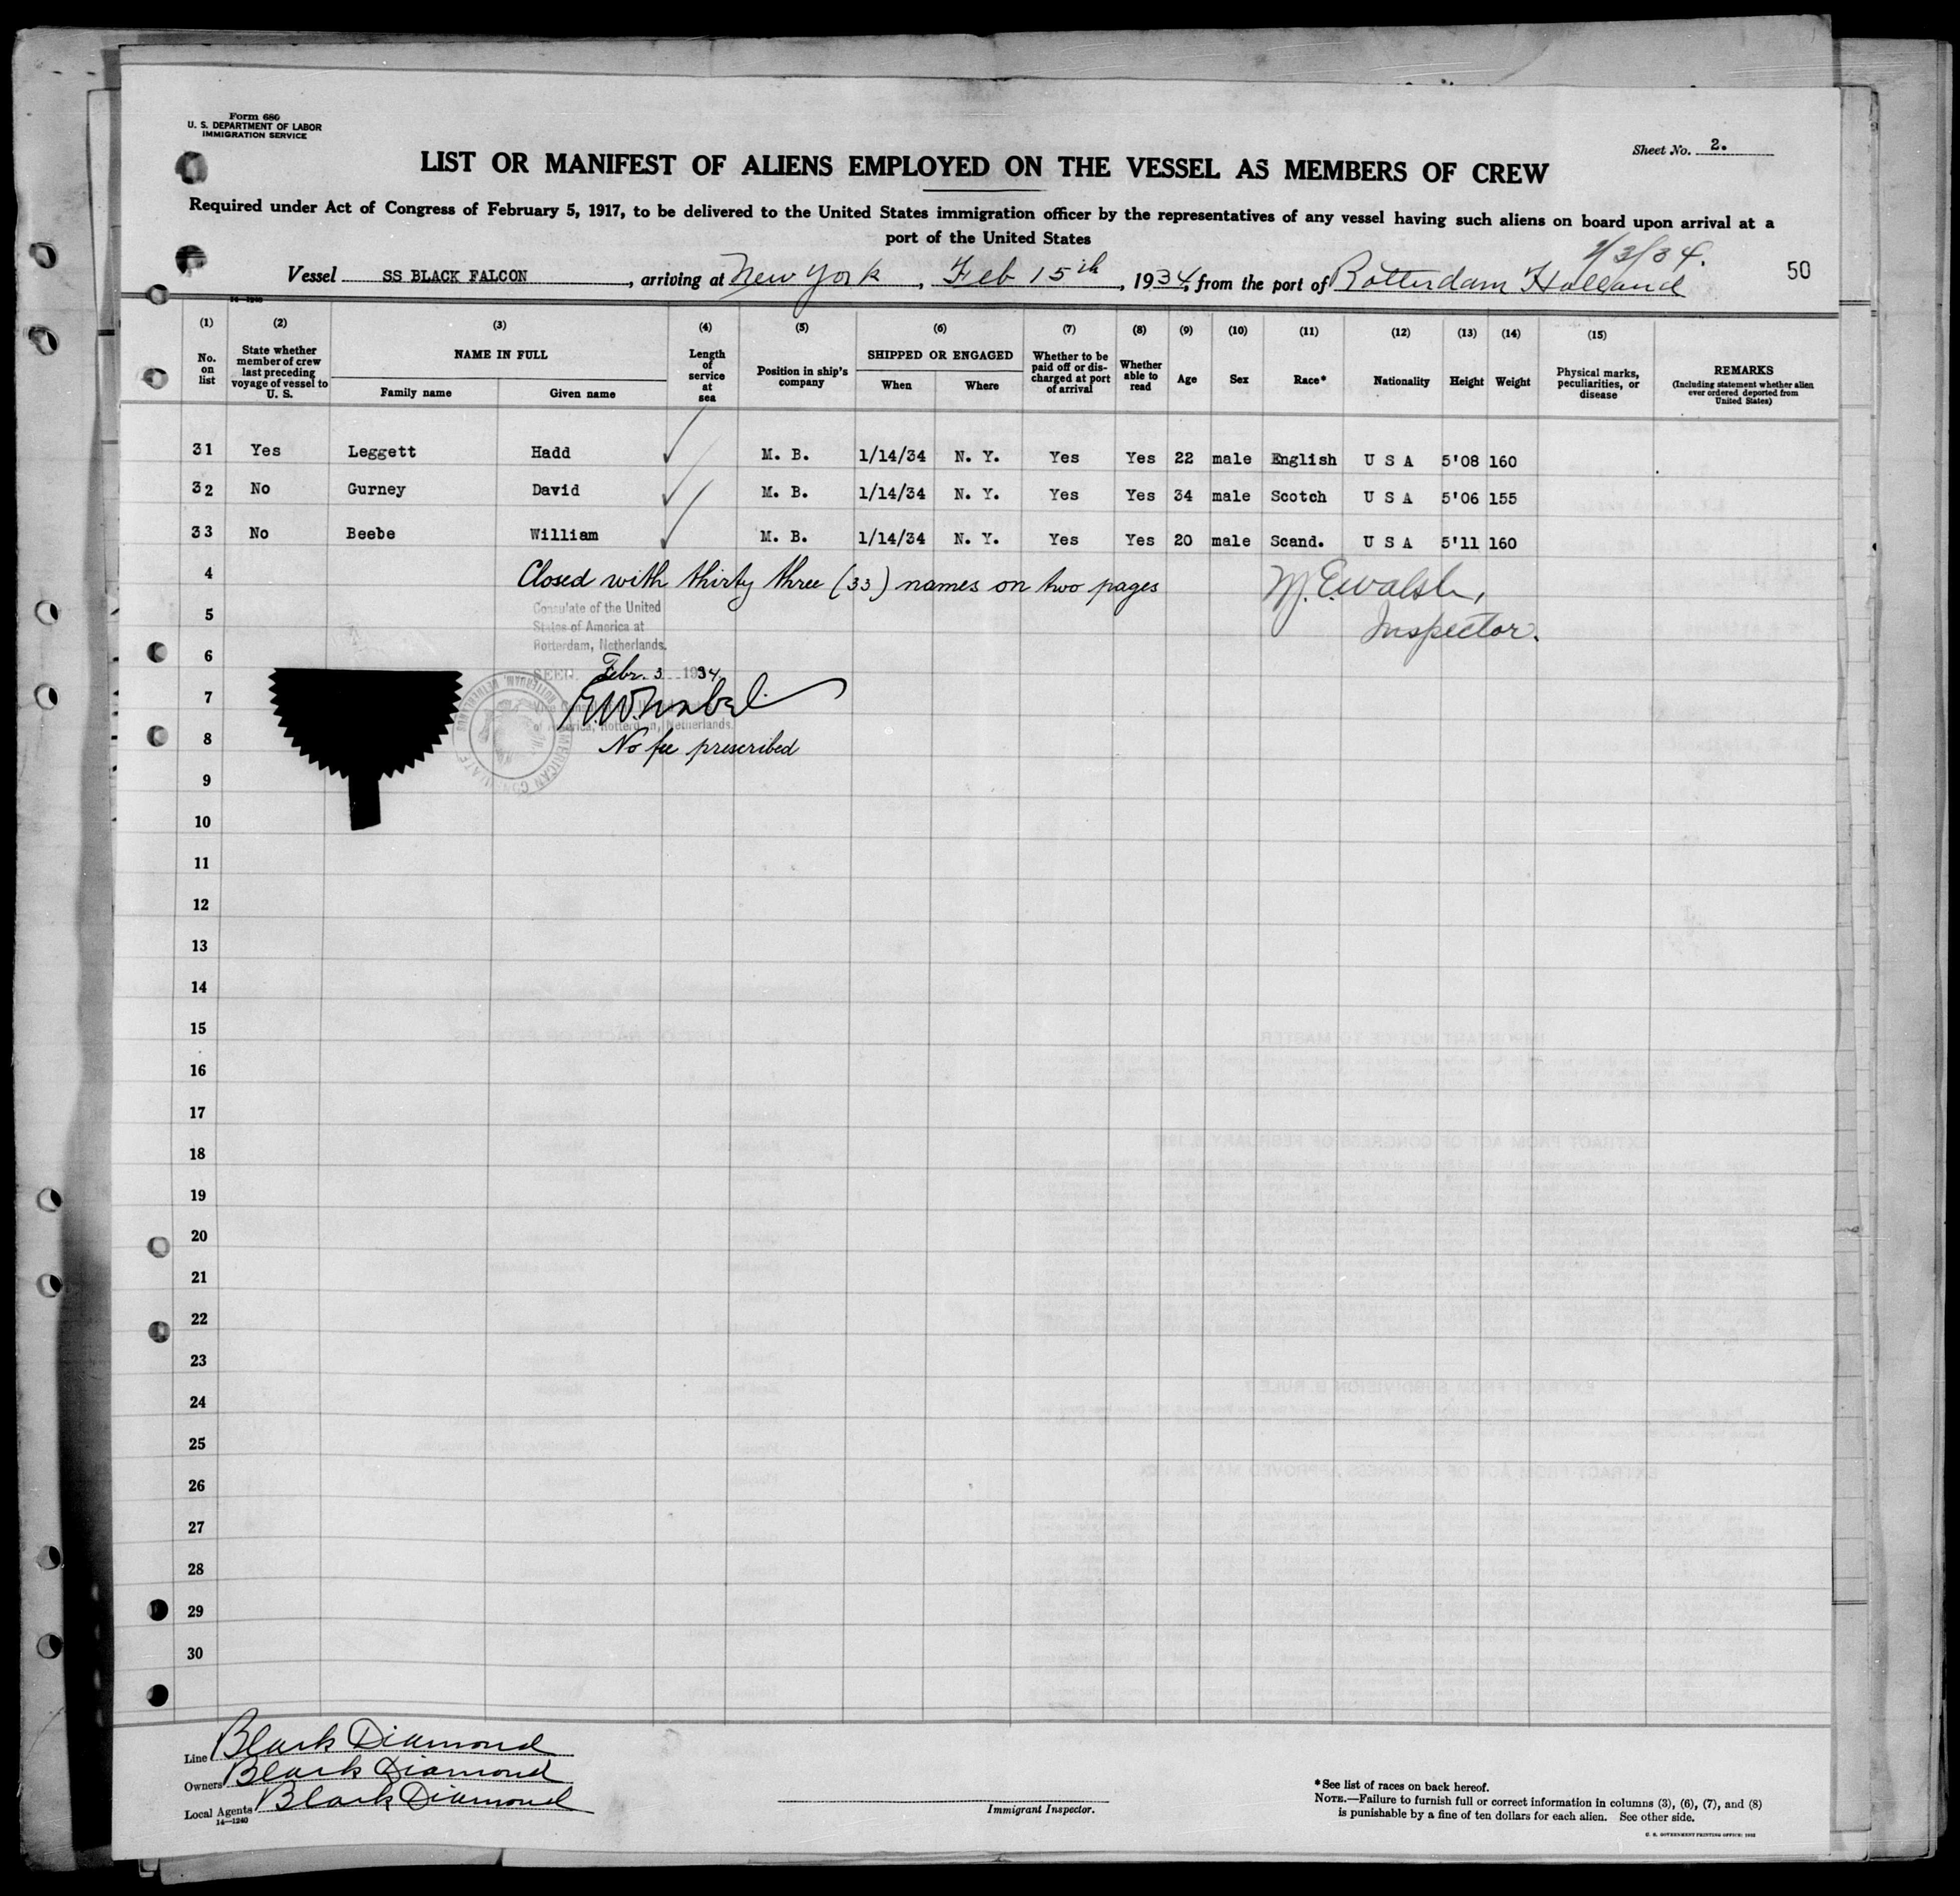 Form 680
U. S. DEPARTMENT OF LABOR
IMMIGRATION SERVICE
Sheet No. 2.
LIST OR MANIFEST OF ALIENS EMPLOYED ON THE VESSEL AS MEMBERS OF CREW
Required under Act of Congress of February 5, 1917, to be delivered to the United States immigration officer by the representatives of any vessel having such aliens on board upon arrival at a
port of the United States
2/3/34.
Vessel SS BLACK FALCON, arriving at New York, Feb 15th, 1934, from the port of Rotterdam Holland
50
14—1240
(1) (2) (3) (4) (5) (6) (7) (8) (9) (10) (11) (12) (13) (14) (15)
No. on list
State whether member of crew last preceding voyage of vessel to U. S.
NAME IN FULL
Family name Given name
Length of service at sea
Position in ship's company
SHIPPED OR ENGAGED
When Where
Whether to be paid off or discharged at port of arrival
Whether able to read
Age Sex Race* Nationality Height Weight
Physical marks, peculiarities, or disease
REMARKS
(Including statement whether alien ever ordered deported from United States)
31 Yes Leggett Hadd M. B. 1/14/34 N. Y. Yes Yes 22 male English U S A 5'08 160
32 No Gurney David M. B. 1/14/34 N. Y. Yes Yes 34 male Scotch U S A 5'06 155
33 No Beebe William M. B. 1/14/34 N. Y. Yes Yes 20 male Scand. U S A 5'11 160
4 Closed with thirty three (33) names on two pages M. E. Walsh,
Inspector.
Consulate of the United
States of America at
Rotterdam, Netherlands.
SEEN Febr. 3 1934
of America, Rotterdam, Netherlands.
No fee prescribed
AMERICAN CONSULATE
5
6
7
8
9
10
11
12
13
14
15
16
17
18
19
20
21
22
23
24
25
26
27
28
29
30
Line Black Diamond
Owners Black Diamond
Local Agents Black Diamond
14—1240
Immigrant Inspector.
*See list of races on back hereof.
NOTE.—Failure to furnish full or correct information in columns (3), (6), (7), and (8)
is punishable by a fine of ten dollars for each alien. See other side.
U. S. GOVERNMENT PRINTING OFFICE: 1932